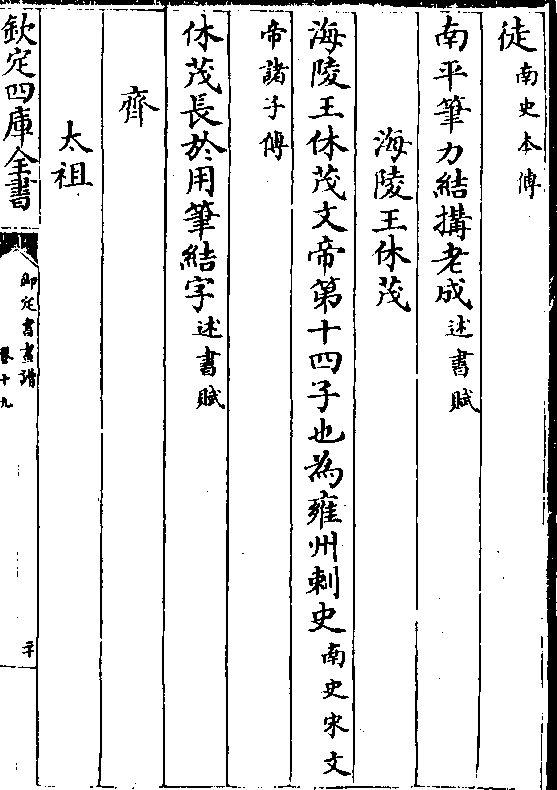 徒南史本傳
南平筆力結搆老成述書賦
海陵王休茂
海陵王休茂文帝第十四子也為雍州刺史南史宋文
帝諸子傳
休茂長於用筆結字述書賦
齊
太祖
欽定四庫全書
御定書畫譜
卷十九
二十